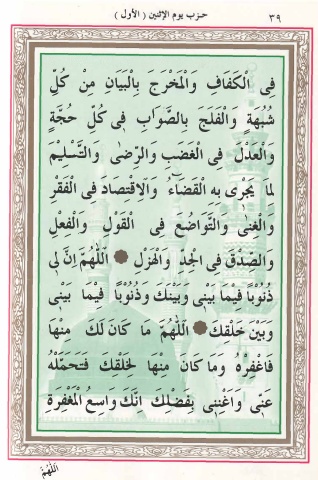 ٣٩
حزب يوم الإثنين ( الأول )
فِى الْكَفَافِ وَالْمَخْرَجَ بِالْبَيَانِ مِنْ كُلِّ
شُبْهَةٍ وَالْفَلَجَ بِالصَّوَابِ فِى كُلِّ حُجَّةٍ
وَالْعَدْلَ فِى الْغَضَبِ وَالرِّضٰى وَالتَّسْلِيمَ
لِمَا يَجْرِى بِهِ الْقَضَاءُ وَالْاِقْتِصَادَ فِى الْفَقْرِ
وَالْغِنٰى وَالتَّوَاضُعَ فِى الْقَوْلِ وَالْفِعْلِ
وَالصِّدْقَ فِى الْجِدِّ وَالْهَزْلِ اَللّٰهُمَّ اِنَّ لِى
ذُنُوبًا فِيمَا بَيْنِى وَبَيْنَكَ وَذُنُوبًا فِيمَا بَيْنِى
وَبَيْنَ خَلْقِكَ اَللّٰهُمَّ مَا كَانَ لَكَ مِنْهَا
فَاغْفِرْهُ وَمَا كَانَ مِنْهَا لِخَلْقِكَ فَتَحَمَّلْهُ
عَنِّى وَاَغْنِنِى بِفَضْلِكَ اِنَّكَ وَاسِعُ الْمَغْفِرَةِ
اَللّٰهُمَّ